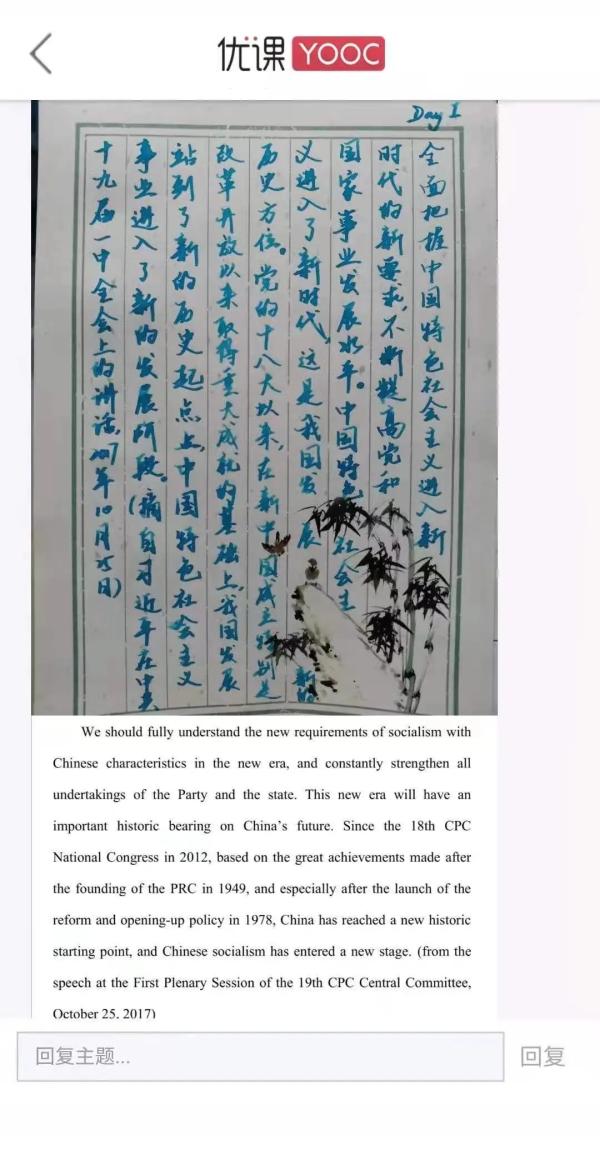 优课 YOOC
Day I
全面把握中国特色社会主义进入新
时代的新要求,不断提高党和
国家事业发展水平。中国特色社会主
义进入了新时代,这是我国发展新的
历史方位。党的十八大以来,在新中国成立特别是
改革开放以来取得重大成就的基础上,我国发展
站到了新的历史起点上,中国特色社会主义
事业进入了新的发展阶段。(摘自习近平在中央
十九届一中全会上的讲话,2017年10月25日)
We should fully understand the new requirements of socialism with
Chinese characteristics in the new era, and constantly strengthen all
undertakings of the Party and the state. This new era will have an
important historic bearing on China's future. Since the 18th CPC
National Congress in 2012, based on the great achievements made after
the founding of the PRC in 1949, and especially after the launch of the
reform and opening-up policy in 1978, China has reached a new historic
starting point, and Chinese socialism has entered a new stage. (from the
speech at the First Plenary Session of the 19th CPC Central Committee,
October 25, 2017)
回复主题... 回复